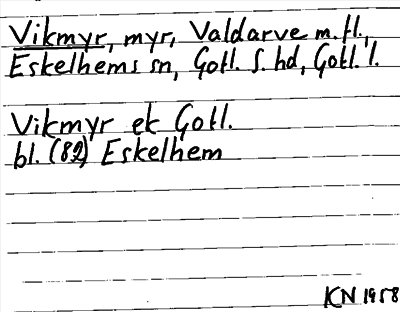 Vikmyr, myr, Valdarve m.fl.,
Eskelhems sn, Gotl. S. hd, Gotl. l.
Vikmyr ek Gotl.
bl. (82) Eskelhem
KN 1958